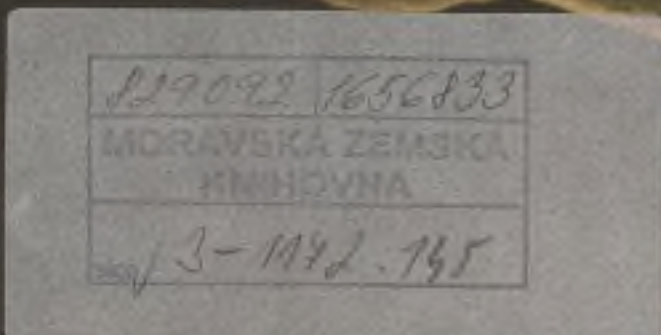 829092 1656833
MORAVSKÁ ZEMSKÁ
KNIHOVNA
3-1142.145